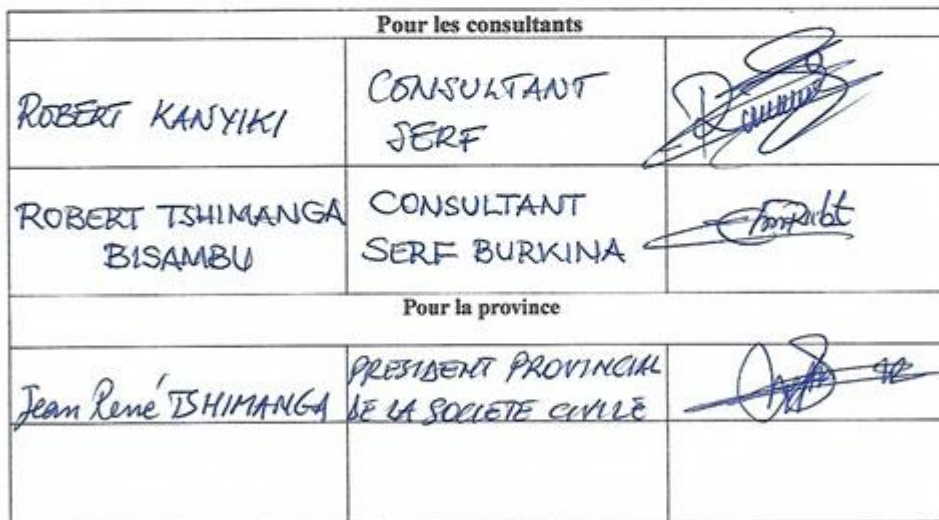 Pour les consultants
ROBERT KANYIKI
CONSULTANT
SERF
ROBERT TSHIMANGA
BISAMBU
CONSULTANT
SERF BURKINA
Pour la province
Jean René TSHIMANGA
PRESIDENT PROVINCIAL
DE LA SOCIETE CIVILE